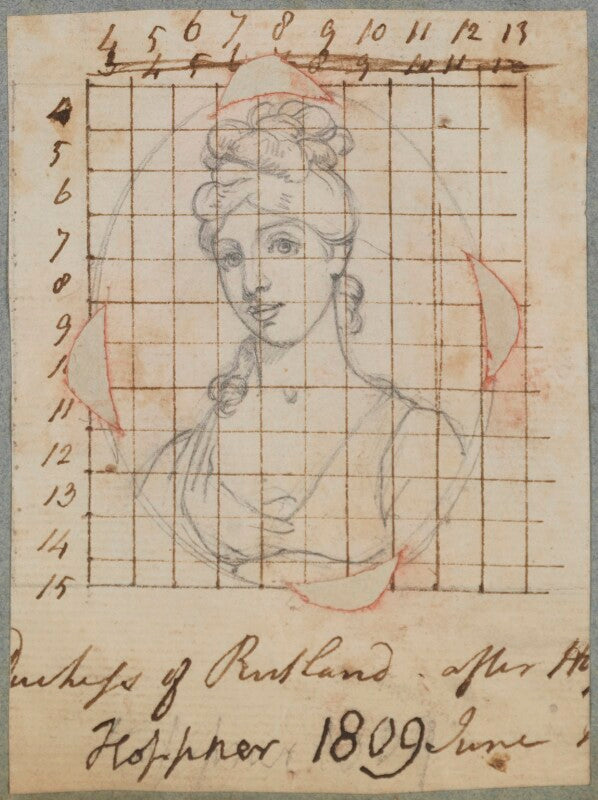 4 5 6 7 8 9 10 11 12 13
3 4 5 6 7 8 9 10 11 12
4
5
6
7
8
9
1
11
12
13
14
15
Duchess of Rutland. after
Hoppner 1809 June